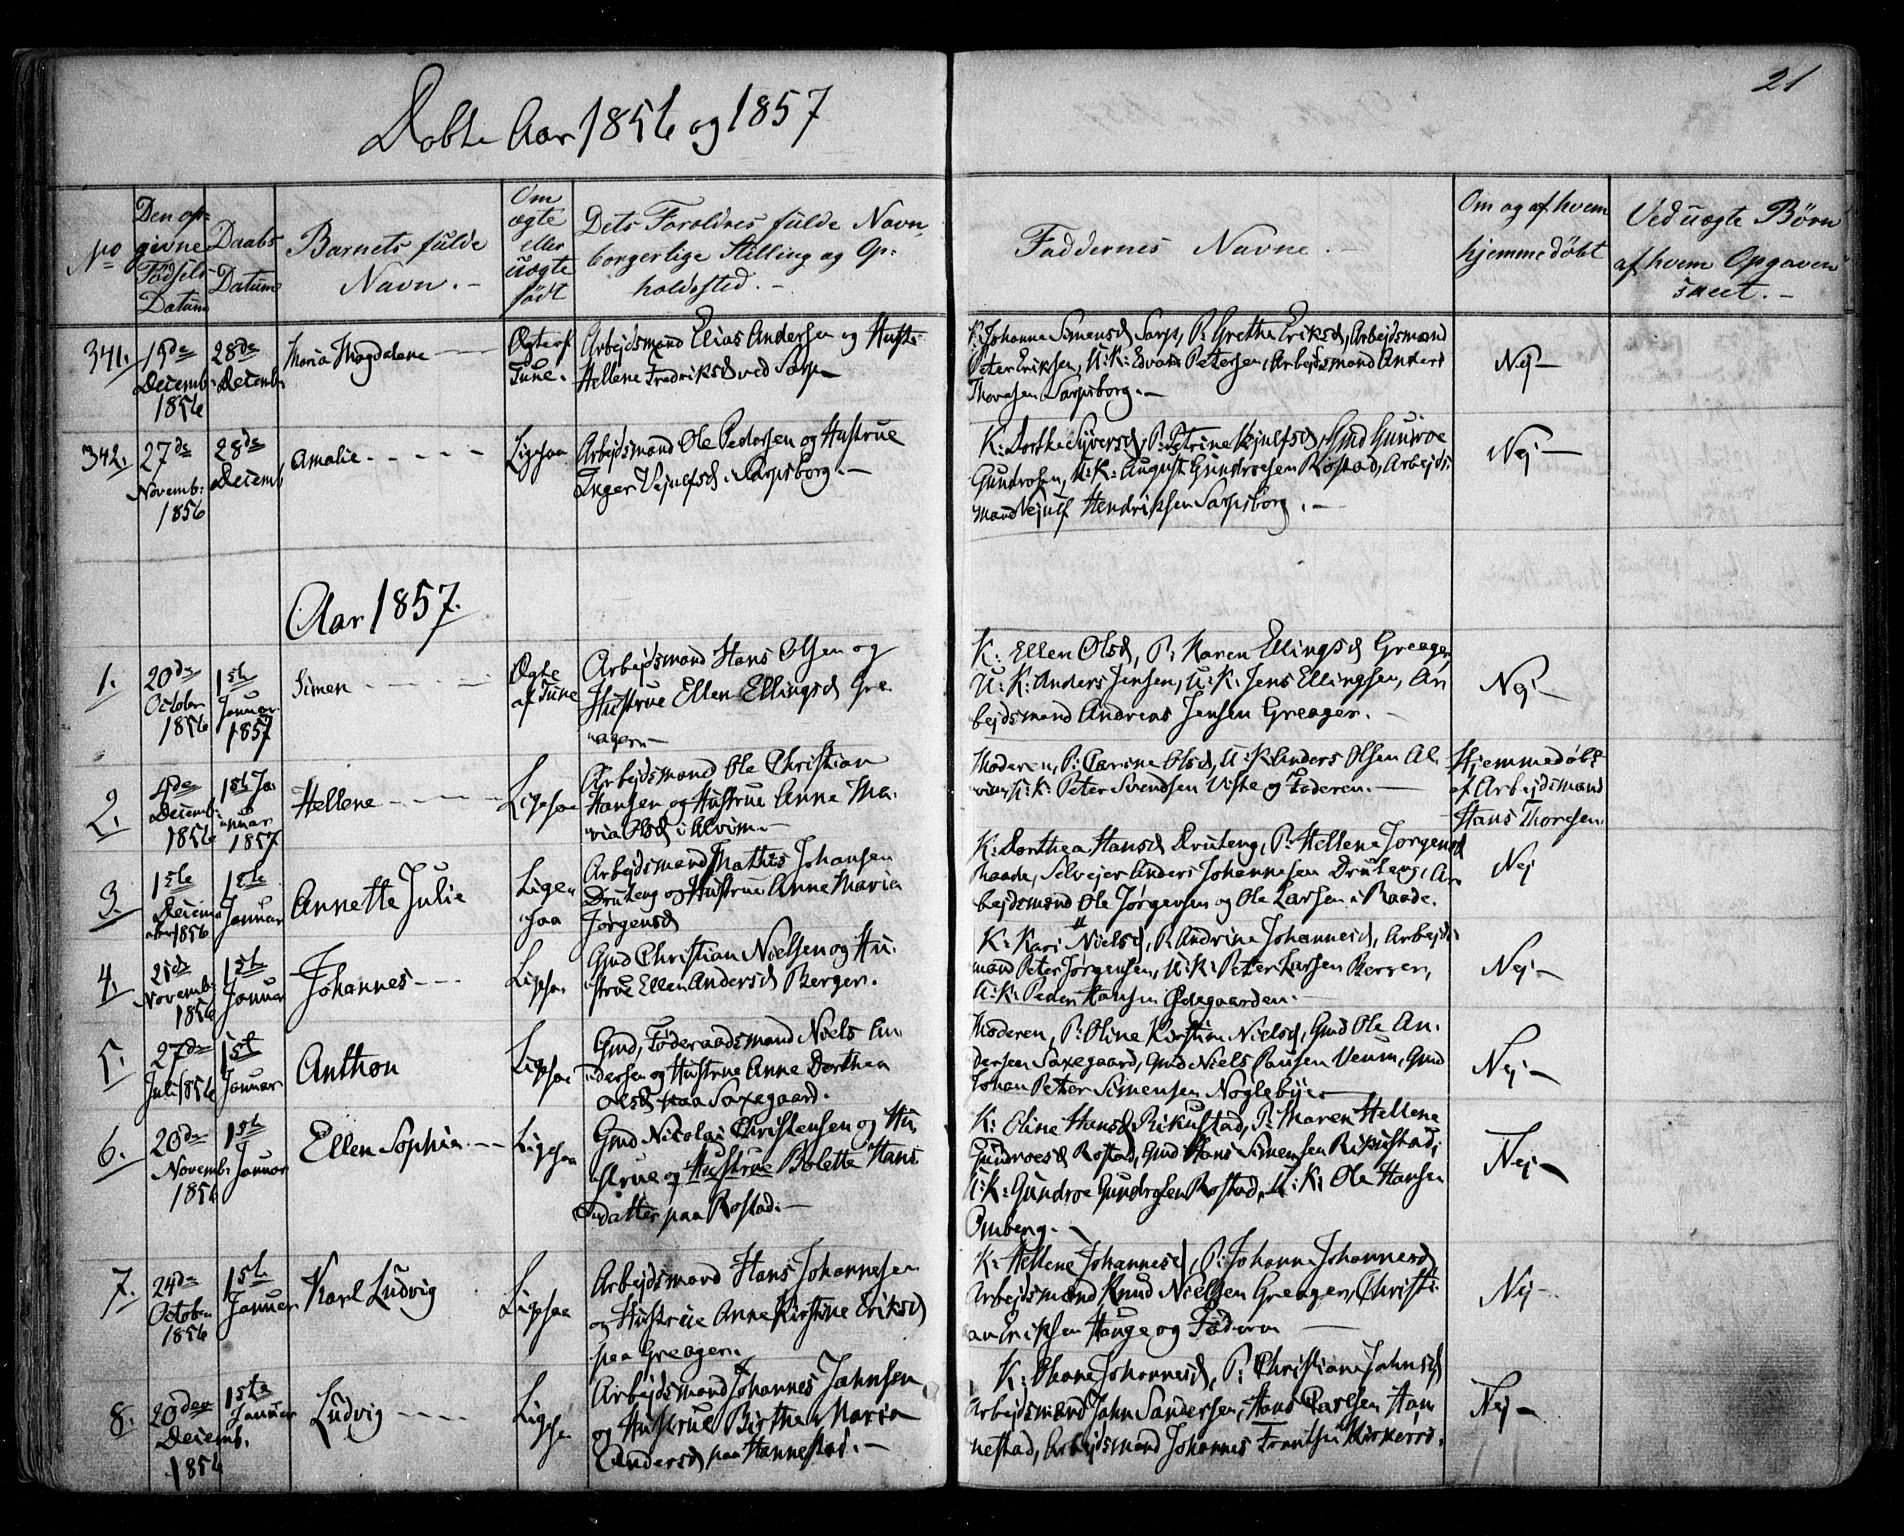 21
Døbte Aar 1856 og 1857
No
Den op-
givne
Fødsels
Datum
Daabs
Datum
Barnets fulde
Navn. -
Om
ægte
eller
uægte
født
Dets Forældres fulde Navn,
borgerlige Stilling og Op-
holdssted. -
Faddernes Navne. -
Om og af hvem
hjemmedøbt
Ved uægte Børn
af hvem Opgaven
skeet. -
341.
15de
Decemb:
1856
28de
Decemb:
Maria Magdalene
Ægte af
Tune.
Arbejdsmand Elias Andersen og Hustr:
Hellene Fredriksd ved Sarp
K: Johanne Simensd Sarp, P: Grethe Eriksd, Arbejdsmand
Peter Eriksen, U:K: Edvart Petersen, Arbejdsmand Anders
Thoresen Sarpsborg. -
Nej -
342.
27de
Novemb:
1856
28de
Decemb
Amalie.
Ligesaa
Arbejdsmand Ole Pedersen og Hustrue
Inger Vejulfsd i Sarpsborg. -
K: Dorthe Syversd, P: Petrine Vejulfsd, Gmd Gunroe
Gundrosen, U:K: August Gundroesen Rostad, Arbejds-
mand Vejulf Hendriksen Sarpsborg. -
Nej -
Aar 1857.
1.
20de
October
1856
1ste
Januar
1857
Simen
Ægte
af Tune
Arbejdsmand Hans Olsen og
Hustrue Ellen Ellingsd Gre-
"ager. -
K: Ellen Olsd, P: Karen Ellingsd Greager,
U:K: Anders Jensen, U:K: Jens Ellingsen, Ar-
bejdsmand Andreas Jensen Greager. -
Nej -
2.
4de
Decemb:
1856
1ste Ja-
"nuar
1857
Hellene
Ligesaa
Arbejdsmand Ole Christian
Hansen og Hustrue Anne Ma-
"ria Olsd i Alvim. -
Moderen, P: Carine Olsd, U:K: Anders Olsen Al-
vim, U:K: Peter Svendsen Viste og Faderen. -
Hjemmedøbt
af Arbejdsmand
Hans Thoresen.
3.
1ste
Decem-
"ber 1856
1ste
Januar
Annette Julie
Ligee
"saa
Arbejdsmand Mathis Johansen
Druteng og Hustrue Anne Maria
Jørgensd
K: Dorthea Hansd Druteng, P: Hellene Jørgensd
Raade, Selvejer Anders Johannesen Druteng, Ar-
bejdsmand Ole Jørgensen og Ole Larsen i Raade.
Nej
4.
25de
Novemb:
1856
1ste
Januar
Johannes
Ligesaa
Gmd Christian Nielsen og Hu-
"strue Ellen Andersd Berger.
K: Kari Nielsd, P: Andrine Johannesd, Arbejds-
mand Peter Jørgensen, U:K: Petter Larsen Berger,
U:K: Peder Hansen Ødegaarden. -
Nej -
5.
27de
Juli 1856
1ste
Januar
Anthon
Ligesaa
Gmd, Føderaadsmand Niels An-
"dersen og Hustrue Anne Dorthea
Olsd paa Saxegaard.
Moderen, P: Oline Kirstine Nielsd, Gmd Ole An-
dersen Saxegaard, Gmd Niels Paulsen Veum, Gmd
Johan Petter Simensen Nøglebye
Nej -
6.
20de
Novemb:
1856
1ste
Januar
Ellen Sophia
Ligesaa
Gmd Nicolai Christensen og Hu-
"strue og Hustrue Bolette Hans
"datter paa Rostad. -
K: Eline Hansd Rikustad, P: Maren Hellene
Gundroesd Rostad, Gmd Hans Simensen Rikustad,
U:K: Gundroe Gundrosen Rostad, U:K: Ole Hansen
Omberg. -
Nej -
7.
24de
October
1856
1ste
Januar
Karl Ludvig
Ligesaa
Arbejdsmand Hans Johannesen
og Hustrue Anne Kirstine Eriksd
paa Greager.
K: Hellene Johannesd, P: Johanne Johannesd
Arbejdsmand Knud Nielsen Greager, Christi-
an Eriksen Hauge og Faderen
Nej -
8.
20den
Decemb.
1856
1ste
Januar
Ludvig
Ligesaa
Arbejdsmand Johannes Jahnsen
og Hustrue Birthe Maria
Andersd paa Hannestad. -
K: Johannesd, P: Christiane Jahnsd
Arbejdsmand Jahn Sandersen, Hans Carlsen Han-
nestad, Arbejdsmand Johannes Frantsen
Nej -